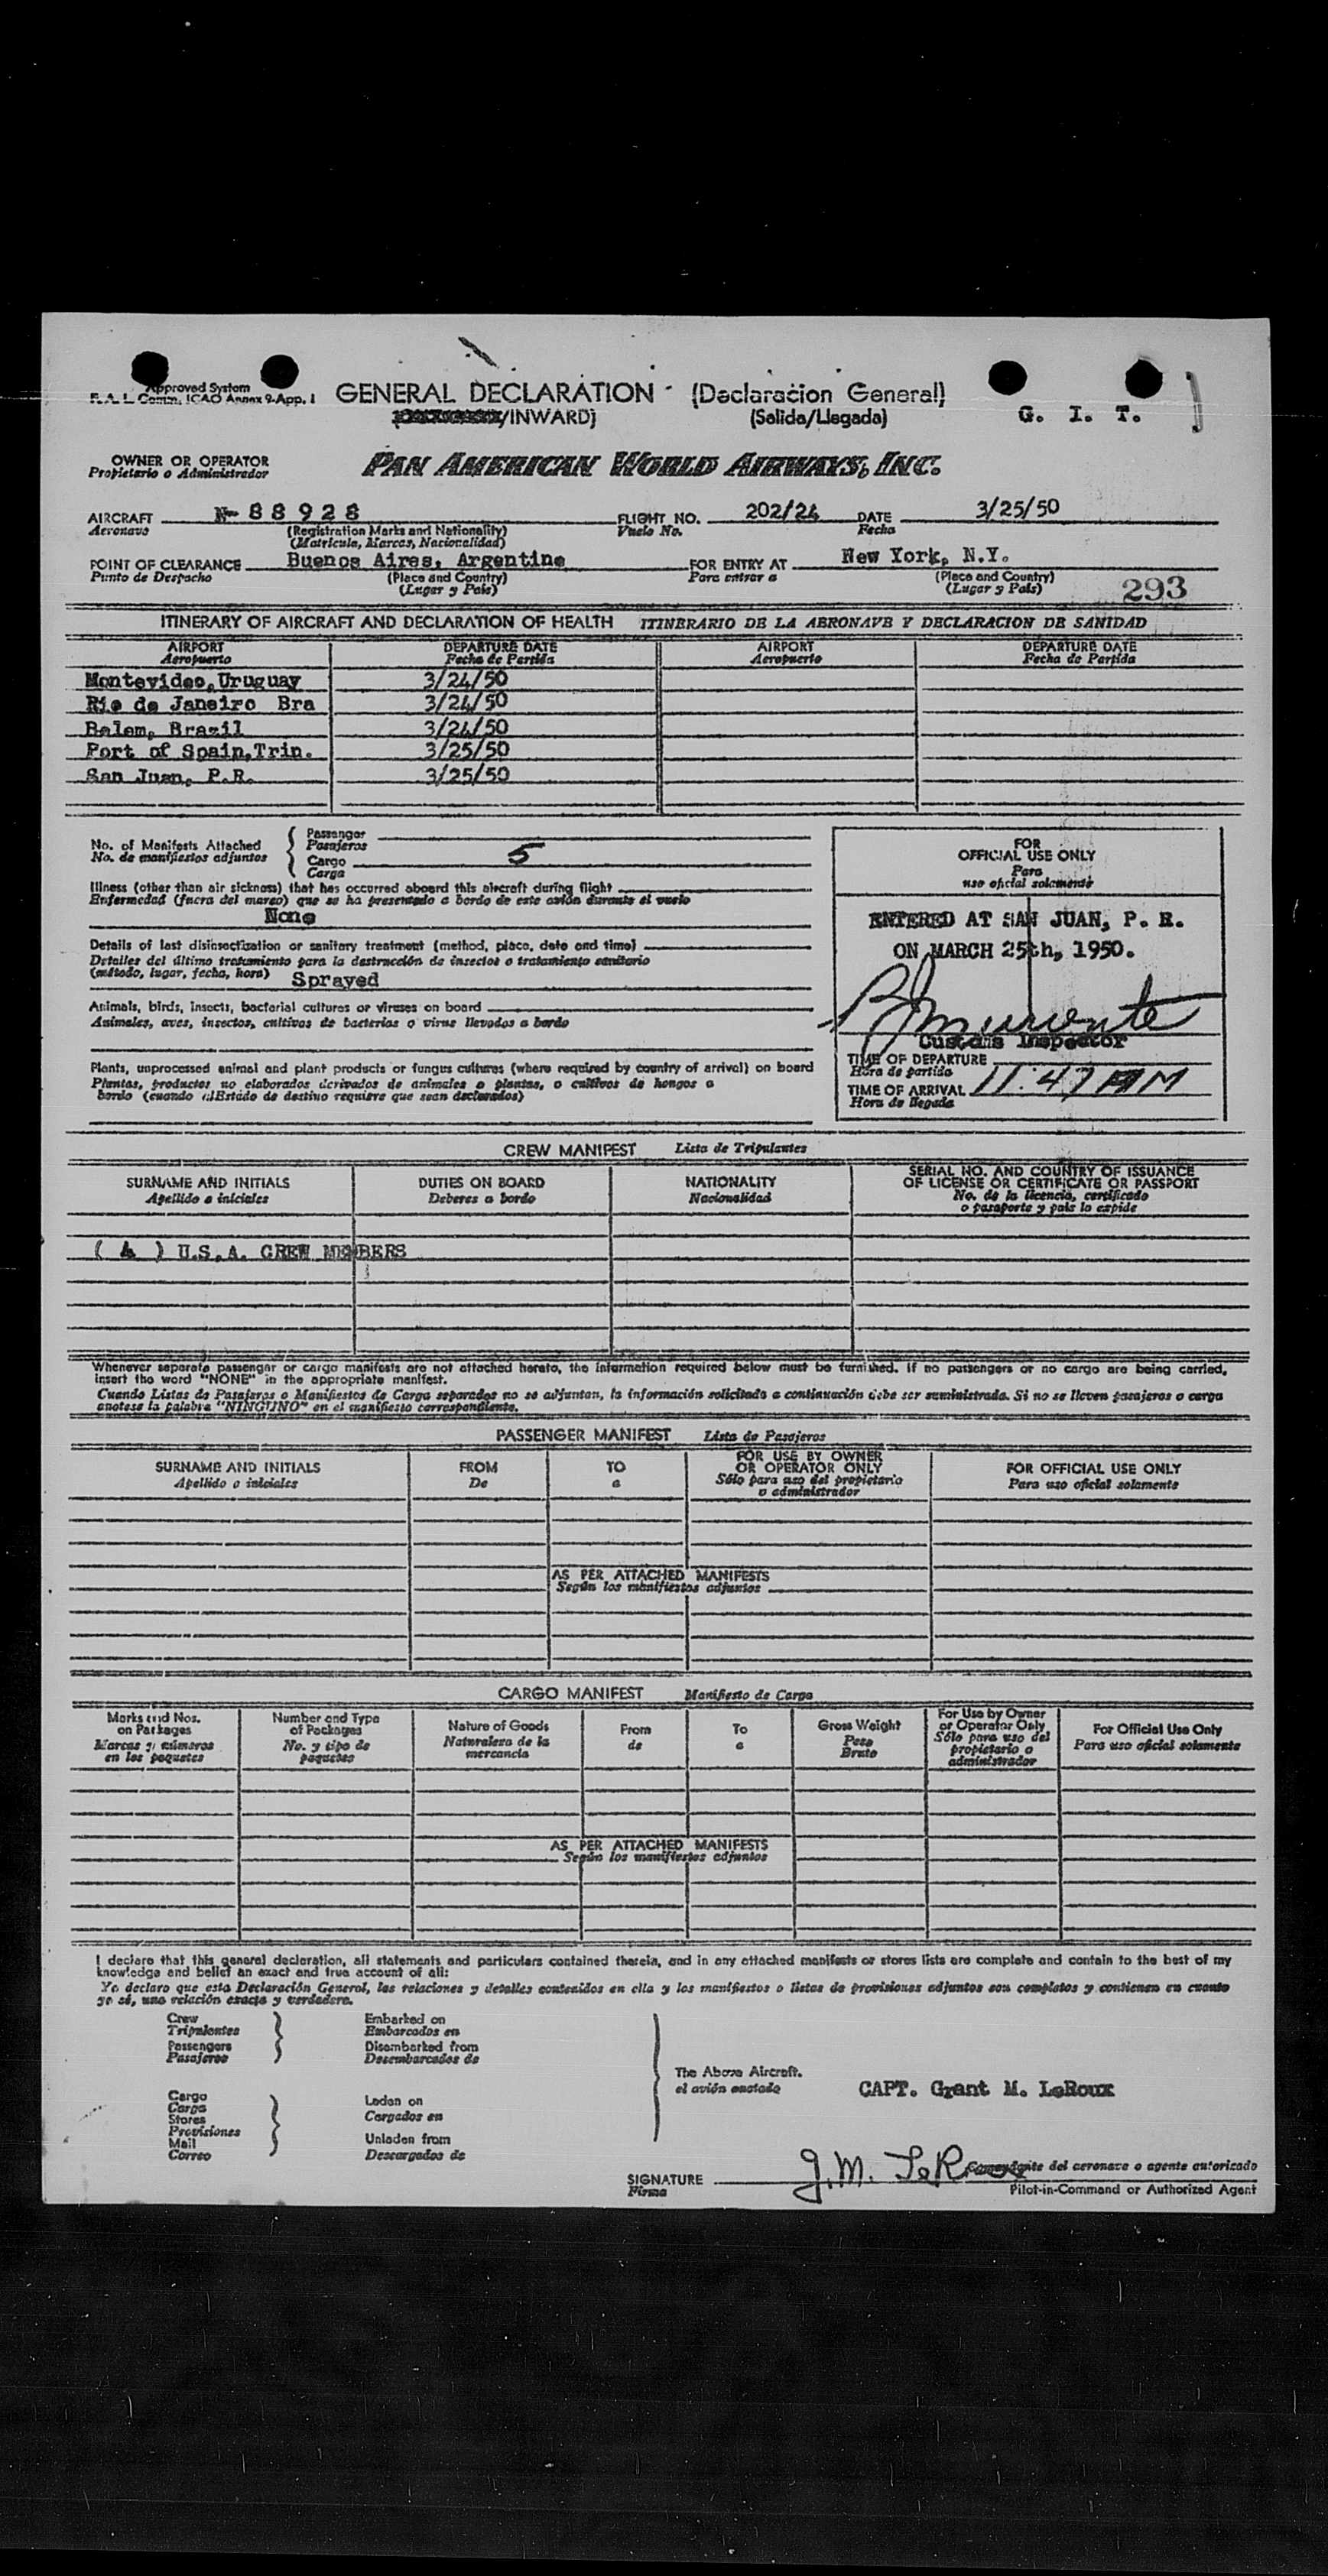 Approved System
F. A. L. Comm. ICAO Annex 9-App. 1
GENERAL DECLARATION - (Declaración General)
/INWARD) (Salida/Llegada)
G. I. T.
OWNER OR OPERATOR
Propietario o Administrador
PAN AMERICAN WORLD AIRWAYS, INC.
AIRCRAFT N- 8 8 9 2 8 FLIGHT NO. 202/24 DATE 3/25/50
Aeronave (Registration Marks and Nationality) Vuelo No. Fecha
(Matrícula, Marcas, Nacionalidad)
POINT OF CLEARANCE Buenos Aires, Argentine FOR ENTRY AT New York, N.Y.
Punto de Despacho (Place and Country) Para entrar a (Place and Country)
(Lugar y País) (Lugar y País)
293
ITINERARY OF AIRCRAFT AND DECLARATION OF HEALTH ITINERARIO DE LA AERONAVE Y DECLARACION DE SANIDAD
AIRPORT DEPARTURE DATE AIRPORT DEPARTURE DATE
Aeropuerto Fecha de Partida Aeropuerto Fecha de Partida
Montevideo,Uruguay 3/24/50
Rio de Janeiro Bra 3/24/50
Belem, Brazil 3/24/50
Port of Spain,Trin. 3/25/50
San Juan, P.R. 3/25/50
No. of Manifests Attached
No. de manifiestos adjuntos
Passenger
Pasajeros
Cargo 5
Carga
Illness (other than air sickness) that has occurred aboard this aircraft during flight
Enfermedad (fuera del mareo) que se ha presentado a bordo de este avión durante el vuelo
None
Details of last disinsectization or sanitary treatment (method, place, date and time)
Detalles del último tratamiento para la destrucción de insectos o tratamiento sanitario
(método, lugar, fecha, hora) Sprayed
Animals, birds, insects, bacterial cultures or viruses on board
Animales, aves, insectos, cultivos de bacterias o virus llevados a bordo
Plants, unprocessed animal and plant products or fungus cultures (where required by country of arrival) on board
Plantas, productos no elaborados derivados de animales o plantas, o cultivos de hongos a
bordo (cuando el Estado de destino requiere que sean declarados)
FOR
OFFICIAL USE ONLY
Para
uso oficial solamente
ENTERED AT SAN JUAN, P. R.
ON MARCH 25th, 1950.
Customs Inspector
TIME OF DEPARTURE
Hora de partida
TIME OF ARRIVAL 11:47 AM
Hora de llegada
CREW MANIFEST Lista de Tripulantes
SURNAME AND INITIALS DUTIES ON BOARD NATIONALITY SERIAL NO. AND COUNTRY OF ISSUANCE
OF LICENSE OR CERTIFICATE OR PASSPORT
Apellido e iniciales Deberes a bordo Nacionalidad No. de la licencia, certificado
o pasaporte y país lo expide
( 4 ) U.S.A. CREW MEMBERS
Whenever separate passenger or cargo manifests are not attached hereto, the information required below must be furnished. If no passengers or no cargo are being carried,
insert the word "NONE" in the appropriate manifest.
Cuando Listas de Pasajeros o Manifiestos de Carga separados no se adjuntan, la información solicitada a continuación debe ser suministrada. Si no se lleven pasajeros o carga
anotese la palabra "NINGUNO" en el manifiesto correspondiente.
PASSENGER MANIFEST Lista de Pasajeros
SURNAME AND INITIALS FROM TO FOR USE BY OWNER
OR OPERATOR ONLY FOR OFFICIAL USE ONLY
Apellido e iniciales De a Sólo para uso del propietario
o administrador Para uso oficial solamente
AS PER ATTACHED MANIFESTS
Según los manifiestos adjuntos
CARGO MANIFEST Manifiesto de Carga
Marks and Nos.
on Packages
Marcas y números
en los paquetes
Number and Type
of Packages
No. y tipo de
paquetes
Nature of Goods
Naturaleza de la
mercancía
From
de
To
a
Gross Weight
Peso
Bruto
For Use by Owner
or Operator Only
Sólo para uso del
propietario o
administrador
For Official Use Only
Para uso oficial solamente
AS PER ATTACHED MANIFESTS
Según los manifiestos adjuntos
I declare that this general declaration, all statements and particulars contained therein, and in any attached manifests or stores lists are complete and contain to the best of my
knowledge and belief an exact and true account of all:
Yo declaro que esta Declaración General, las relaciones y detalles contenidos en ella y los manifiestos o listas de provisiones adjuntos son completos y contienen en cuanto
yo sé, una relación exacta y verdadera.
Crew
Tripulantes
Passengers
Pasajeros
Embarked on
Embarcados en
Disembarked from
Desembarcados de
Cargo
Carga
Stores
Provisiones
Mail
Correo
Laden on
Cargados en
Unladen from
Descargados de
The Above Aircraft.
el avión anotado
CAPT. Grant M. LeRoux
SIGNATURE G.M. LeRoux Comandante del aeronave o agente autorizado
Firma Pilot-in-Command or Authorized Agent